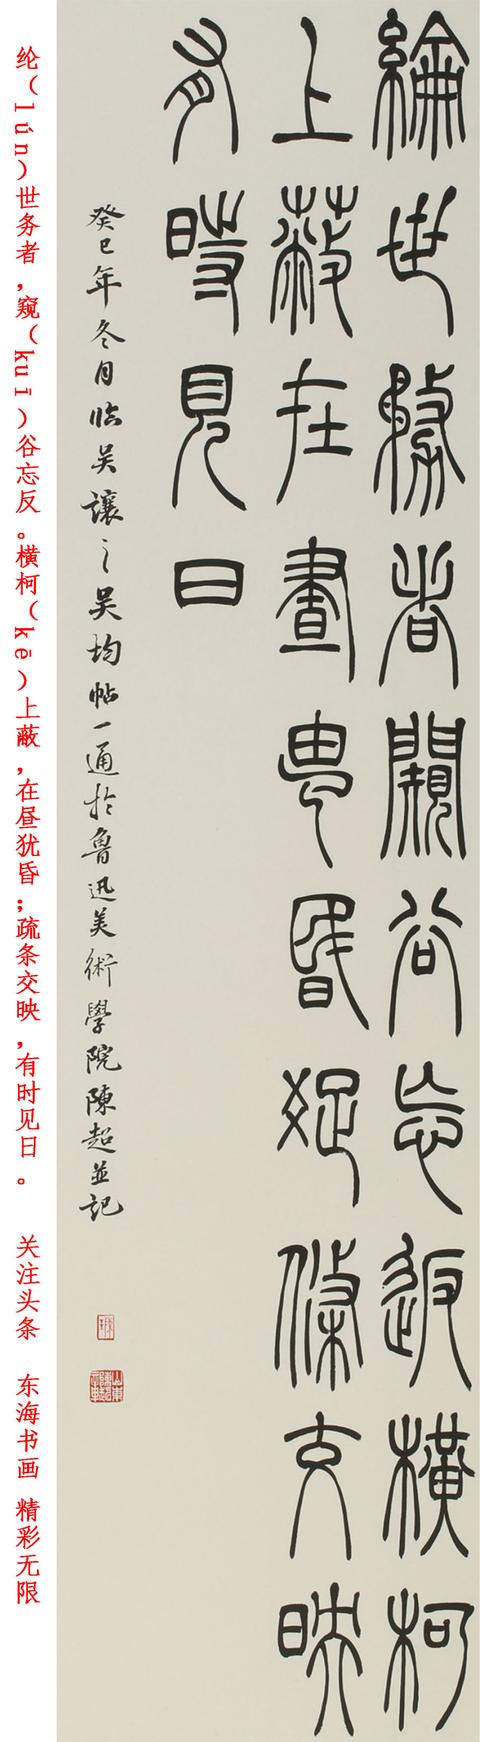 綸世務者闚谷忘返橫柯
上蔽在晝猶昏疏條交映
有時見日
癸巳年冬月臨吳讓之吳均帖一通於魯迅美術學院陳超並記
纶（lún）世务者，窥（kuī）谷忘反。横柯（kē）上蔽，在昼犹昏；疏条交映，有时见日。 关注头条 东海书画 精彩无限